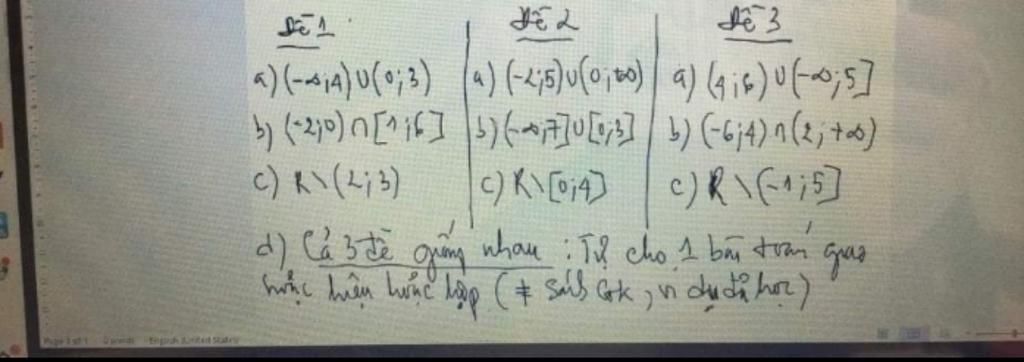 Đề 1
a) (-∞;4) ∪ (0;3)
b) (-2;0) ∩ [1;6]
c) R \ (2;3)
Đề 2
a) (-2;5) ∪ (0;+∞)
b) (-∞;7] ∪ [0;3]
c) R \ [0;4]
Đề 3
a) (4;6) ∪ (-∞;5]
b) (-6;4) ∩ (2;+∞)
c) R \ (-1;5]
d) Cả 3 đề giống nhau : Tự cho 1 bài toán giao
hoặc hiệu hoặc hợp (≠ sách GK, ví dụ đã học)
Page 1 of 1 0 words English (United States)